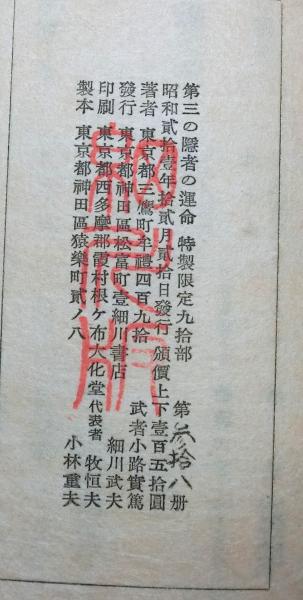 第三の隱者の運命 特製限定九拾部 第参拾八册
昭和貳拾壹年拾貳月貳拾日發行 頒價上下壹百五拾圓
著者 東京都三鷹町牟禮四百九拾 武者小路實篤
發行 東京都神田區松富町壹細川書店 細川武夫
印刷 東京都西多摩郡霞村根ヶ布大化堂代表者 牧恒夫
製本 東京都神田區猿樂町貳ノ八 小林重夫